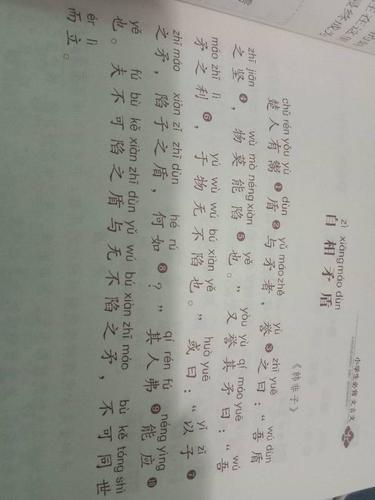 小学生必背文言文
zì xiāng máo dùn
自相矛盾
《韩非子》
chǔ rén yǒu yù dùn yǔ máo zhě yù zhī yuē wú dùn
楚人有鬻❶盾❷与矛者，誉❸之曰：“吾盾
zhī jiān wù mò néng xiàn yě yòu yù qí máo yuē wú
之坚❹，物莫能陷❺也。”又誉其矛曰：“吾
máo zhī lì yú wù wú bù xiàn yě huò yuē yǐ zǐ
矛之利❻，于物无不陷也。”或曰：“以子❼
zhī máo xiàn zǐ zhī dùn hé rú qí rén fú néng yìng
之矛，陷子之盾，何如❽？”其人弗❾能应❿
yě fú bù kě xiàn zhī dùn yǔ wú bù xiàn zhī máo bù kě tóng shì
也。夫不可陷之盾与无不陷之矛，不可同世
ér lì
而立。